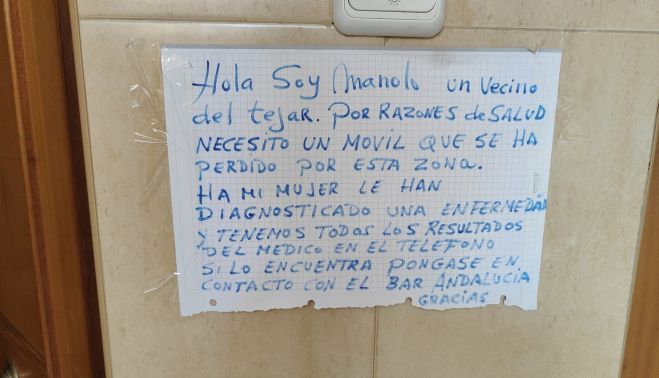 Hola Soy Manolo un Vecino
del tejar. POR RAZONES de SALUD
NECESITO UN MOVIL QUE SE HA
PERDIDO POR ESTA ZONA.
HA MI MUJER LE HAN
DIAGNOSTICADO UNA ENFERMEDAD
Y TENEMOS TODOS LOS RESULTADOS
DEL MEDICO EN EL TELEFONO
SI LO ENCUENTRA PONGASE EN
CONTACTO CON EL BAR ANDALUCIA
GRACIAS
emoji